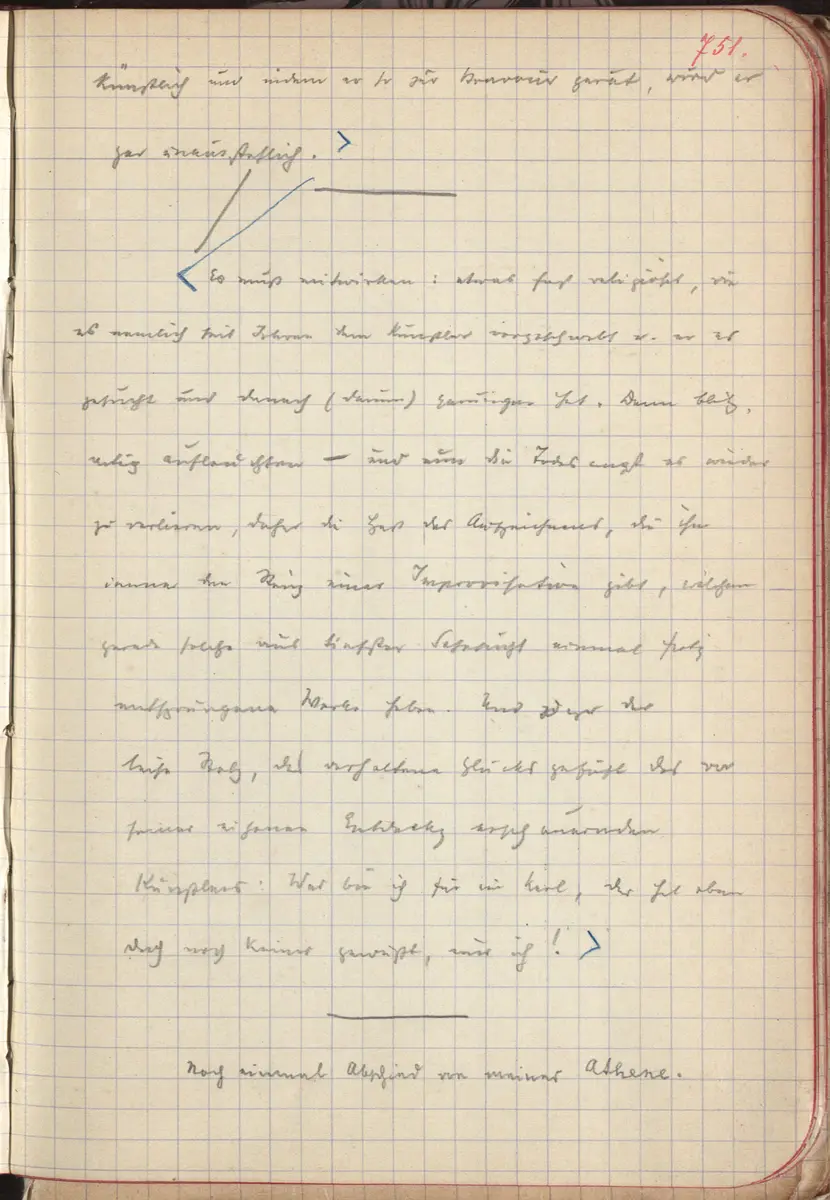 751.
künstlich und indem er so zur Bravour gerät, wird er
gar unausstehlich. >
< Es muß mitwirken: etwas fast religiöses, wie
es nemlich seit Jahren dem Künstler vorgeschwebt u. er es
gesucht und danach (darum) gerungen hat. Dann blitz-
artig aufleuchten — und nun die Todesangst es wieder
zu verlieren, daher die Hast des Aufzeichnens, die ihm
immer den Reiz einer Improvisation gibt, welchen
gerade solche aus tiefster Sehnsucht einmal
entsprungene Werke haben. Und der
leise Stolz, das verhaltene Glücksgefühl des vor
seiner eigenen Entdeckg erschauernden
Künstlers: Was bin ich für ein Kerl, das hat eben
doch noch keiner gewußt, nur ich! >
Noch einmal Abschied von meiner Athene.